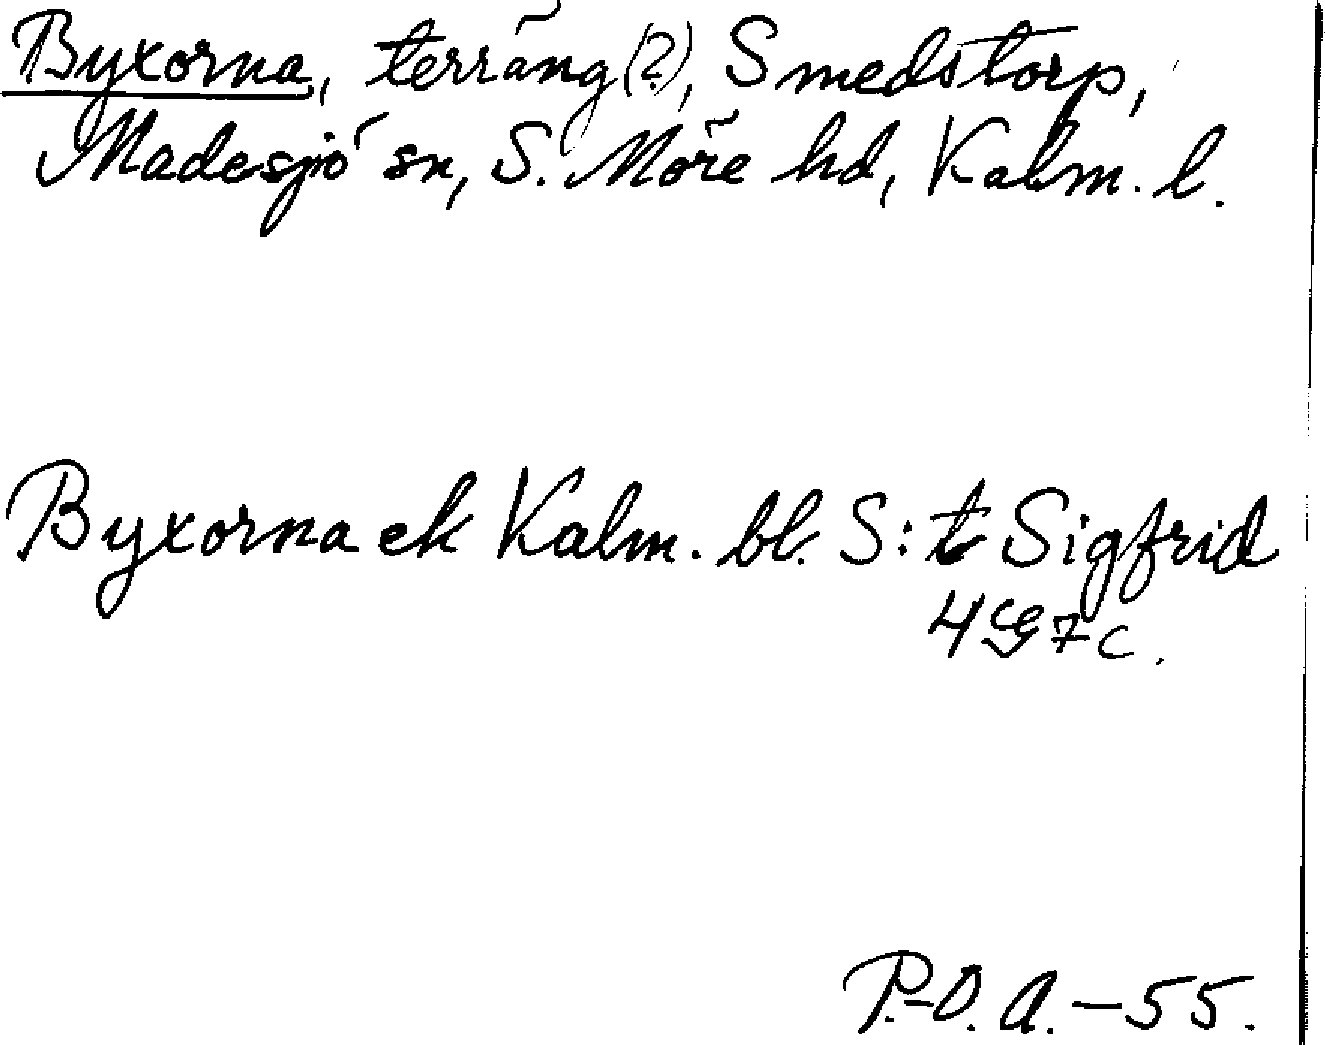 Byxorna, terräng (?), Smedstorp,
Madesjö sn, S. Möre hd, Kalm. l.
Byxorna ek Kalm. bl. S:t Sigfrid
4G7c.
P.-O. A. - 55.